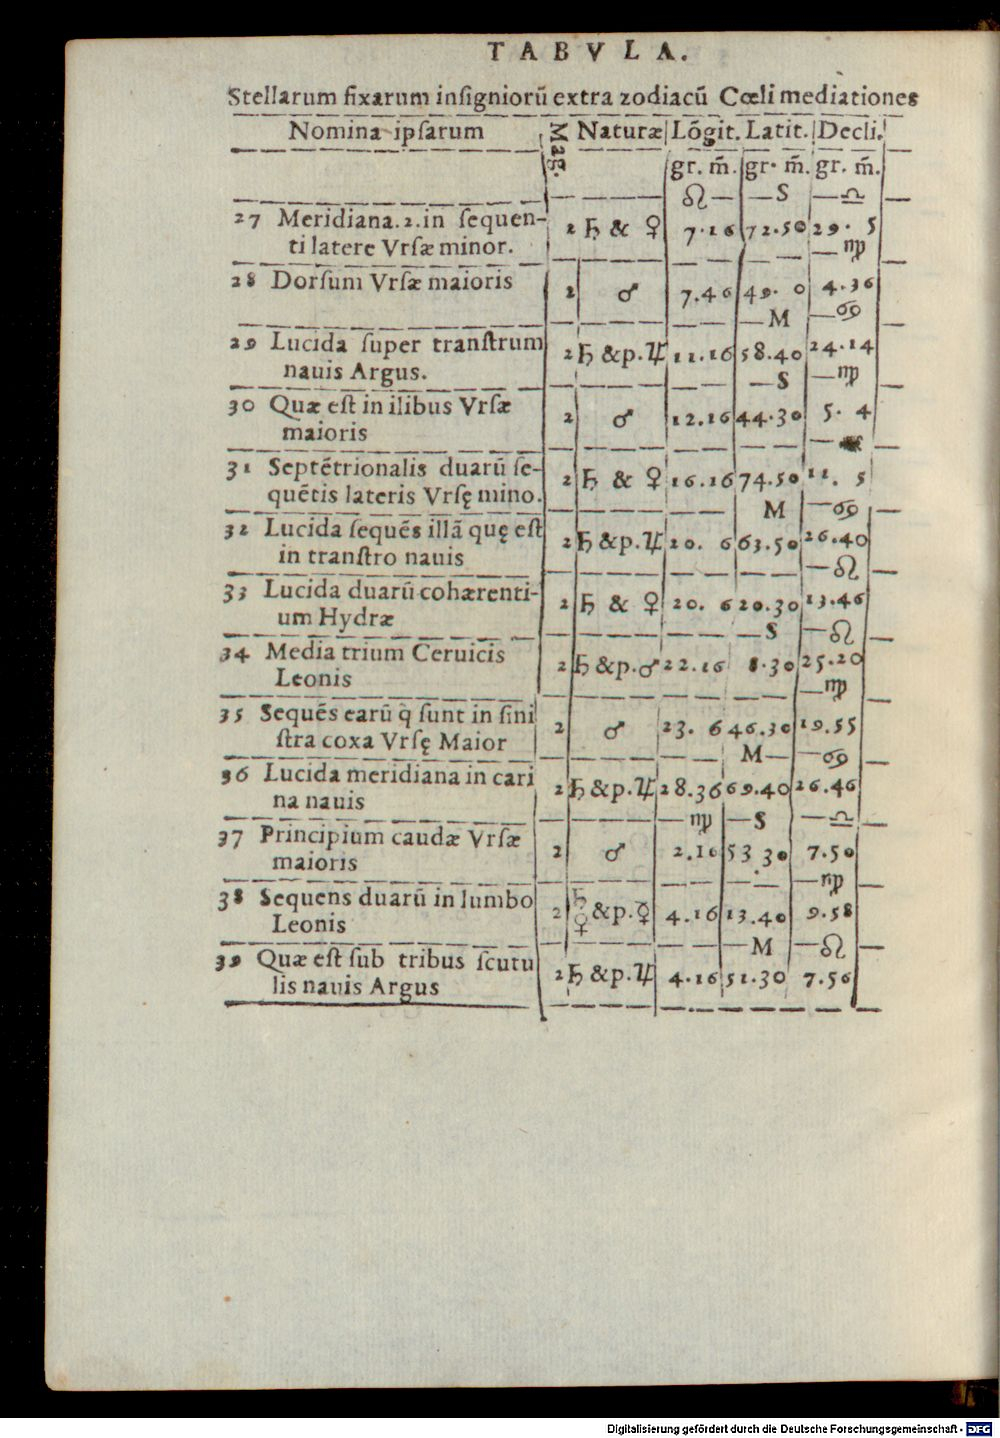 TABVLA.
Stellarum fixarum inſigniorũ extra zodiacũ Cœli mediationes
Nomina ipſarum Mag. Naturæ Lõgit. Latit. Decli.
gr. m̃. gr. m̃. gr. m̃.
♌ S ♎
27 Meridiana .2. in ſequen- 2 ♄ & ♀ 7.16 72.50 29. 5
ti latere Vrſæ minor. ♍
28 Dorſum Vrſæ maioris 2 ♂ 7.46 49. 0 4.36
M ♋
29 Lucida ſuper tranſtrum 2 ♄ &p.♃ 11.16 58.40 24.14
nauis Argus. S ♍
30 Quæ eſt in ilibus Vrſæ 2 ♂ 12.16 44.30 5. 4
maioris
31 Septẽtrionalis duarũ ſe- 2 ♄ & ♀ 16.16 74.50 11. 5
quẽtis lateris Vrſę mino. M ♋
32 Lucida ſequẽs illã quę eſt 2 ♄ &p.♃ 20. 6 63.50 26.40
in tranſtro nauis ♌
33 Lucida duarũ cohærenti- 2 ♄ & ♀ 20. 6 20.30 13.46
um Hydræ S ♌
34 Media trium Ceruicis 2 ♄ &p.♂ 22.16 8.30 25.20
Leonis ♍
35 Sequẽs earũ q̃ ſunt in ſini 2 ♂ 23. 6 46.30 19.55
ſtra coxa Vrſę Maior M ♋
36 Lucida meridiana in cari 2 ♄ &p.♃ 28.36 69.40 26.46
na nauis ♍ S ♎
37 Principium caudæ Vrſæ 2 ♂ 2.16 53 30 7.50
maioris ♍
38 Sequens duarũ in lumbo 2 ♄ ♀ &p.☿ 4.16 13.40 9.58
Leonis M ♌
39 Quæ eſt ſub tribus ſcutu 2 ♄ &p.♃ 4.16 51.30 7.56
lis nauis Argus
Digitalisierung gefördert durch die Deutsche Forschungsgemeinschaft - DFG